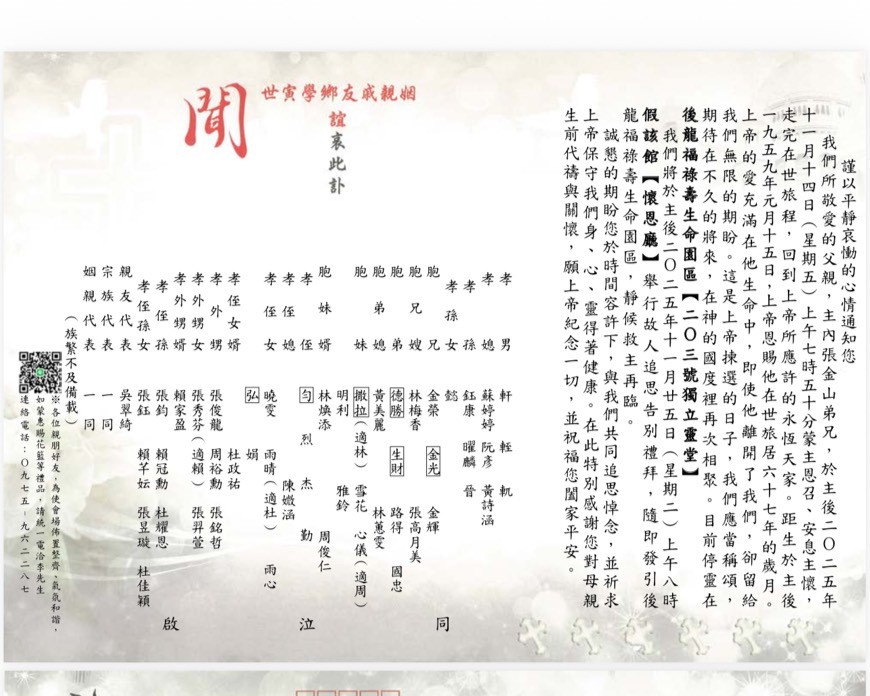 謹以平靜哀慟的心情通知您
我們所敬愛的父親，主內張金山弟兄，於主後二〇二五年
十一月十四日（星期五）上午七時五十分蒙主恩召、安息主懷，
走完在世旅程，回到上帝所應許的永恆天家。距生於主後
一九五九年元月十五日，上帝恩賜他在世旅居六十七年的歲月。
上帝的愛充滿在他生命中，即使他離開了我們，卻留給
我們無限的期盼。這是上帝揀選的日子，我們應當稱頌，
期待在不久的將來，在神的國度裡再次相聚。目前停靈在
後龍福祿壽生命園區【二〇三號獨立靈堂】
我們將於主後二〇二五年十一月廿五日（星期二）上午八時
假該館【懷恩廳】舉行故人追思告別禮拜，隨即發引後
龍福祿壽生命園區，靜候救主再臨。
誠懇的期盼您於時間容許下，與我們共同追思悼念，並祈求
上帝保守我們身、心、靈得著健康。在此特別感謝您對母親
生前代禱與關懷，願上帝紀念一切，並祝福您闔家平安。
孝男 軒 輊 軏
孝媳 蘇婷婷 阮彥 黃詩涵
孝孫 鈺康 曜麟 晉
孝孫女 懿
胞兄 金榮 金光 金輝
胞兄嫂 林梅香 張高月美
胞弟 德勝 生財 路得 國忠
胞弟媳 黃美麗 林蕙雯
胞妹 撒拉（適林） 雪花 心儀（適周）
明利 雅鈴
胞妹婿 林煥添 周俊仁
孝侄 勻 烈 杰 勤
孝侄媳 陳媺涵
孝侄女 曉雯 雨晴（適杜） 雨心
弘 娟
孝侄女婿 杜政祐
孝外甥 張俊龍 周裕勳 張銘哲
孝外甥女 張秀芬（適賴） 張羿萱
孝外甥婿 賴家盈
孝侄孫 張鈞 賴冠勳 杜耀恩
孝侄孫女 張鈺 賴芊妘 張昱璇 杜佳穎
親友代表 吳翠綺
宗族代表 一同
姻親代表 一同
（族繁不及備載）
同 泣 啟
姻親戚友鄉學寅世
誼
哀此訃
聞
※各位親朋好友，為使會場佈置整齊，氣氛和諧，
如蒙惠賜花籃等禮品，請統一電洽李先生
連絡電話：〇九七五-九六二二八七